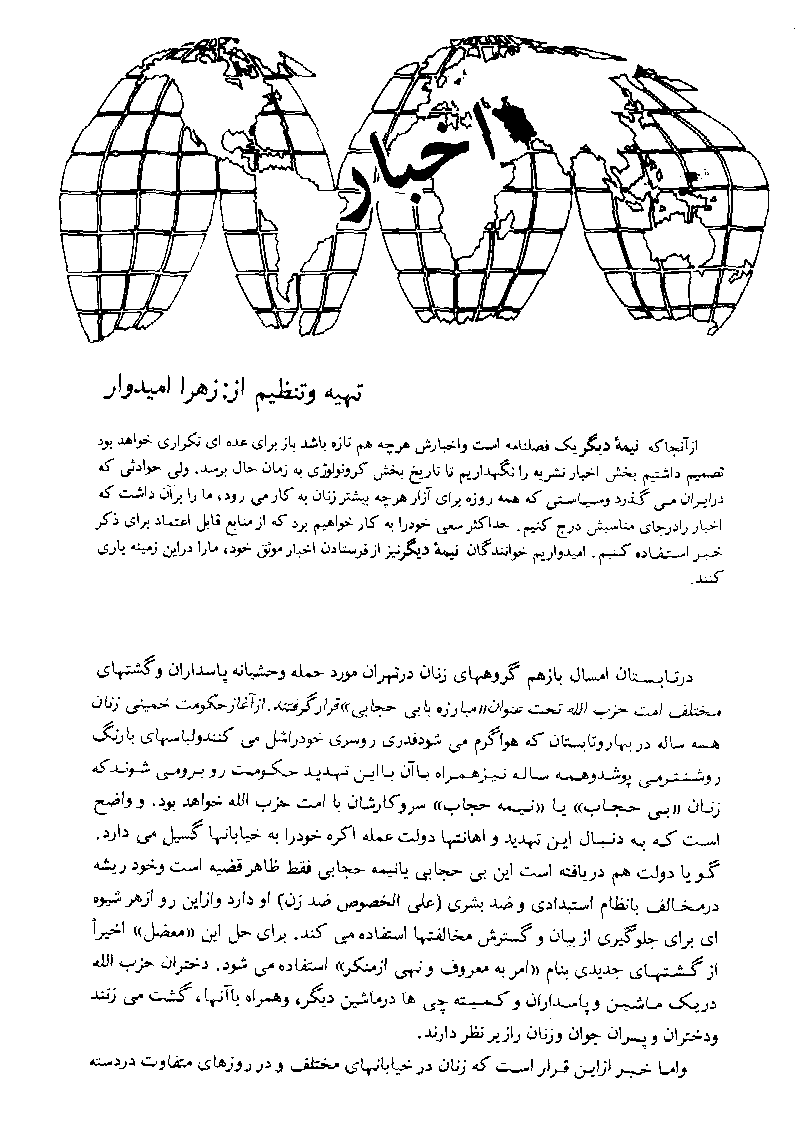 اخبار
تهیه وتنظیم از: زهرا امیدوار
ازآنجاکه نیمهٔ دیگر یک فصلنامه است واخبارش هرچه هم تازه باشد باز برای عده ای تکراری خواهد بود
تصمیم داشتیم بخش اخبار نشریه را نگهداریم تا تاریخ بخش کرونولوژی به زمان حال برسد. ولی حوادثی که
درایران می گذرد وسیاستی که همه روزه برای آزار هرچه بیشتر زنان به کار می رود، ما را برآن داشت که
اخبار رادرجای مناسبش درج کنیم. حداکثر سعی خودرا به کار خواهیم برد که از منابع قابل اعتماد برای ذکر
خبر استفاده کنیم. امیدواریم خوانندگان نیمهٔ دیگرنیز از فرستادن اخبار موثق خود، مارا دراین زمینه یاری
کنند.
درتابستان امسال بازهم گروههای زنان درتهران مورد حمله وحشیانه پاسداران وگشتهای
مختلف امت حزب الله تحت عنوان«مبارزه بابی حجابی»قرارگرفتند. ازآغازحکومت خمینی زنان
همه ساله در بهاروتابستان که هواگرم می شودقدری روسری خودراشل می کنندولباسهای بارنگ
روشنترمی پوشدوهمه ساله نیزهمراه باآن بااین تهدید حکومت رو برومی شوندکه
زنان «بی حجاب» یا «نیمه حجاب» سروکارشان با امت حزب الله خواهد بود. و واضح
است که به دنبال این تهدید و اهانتها دولت عمله اکره خودرا به خیابانها گسیل می دارد.
گویا دولت هم دریافته است این بی حجابی یانیمه حجابی فقط ظاهر قضیه است وخود ریشه
درمخالف بانظام استبدادی و ضد بشری (علی الخصوص ضد زن) او دارد وازاین رو ازهر شیوه
ای برای جلوگیری از بیان و گسترش مخالفتها استفاده می کند. برای حل این «معضل» اخیراً
از گشتهای جدیدی بنام «امر به معروف و نهی ازمنکر» استفاده می شود. دختران حزب الله
دریک ماشین وپاسداران و کمیته چی ها درماشین دیگر، وهمراه باآنها، گشت می زنند
ودختران و پسران جوان وزنان رازیر نظر دارند.
واما خبر ازاین قرار است که زنان در خیابانهای مختلف و در روزهای متفاوت دردسته